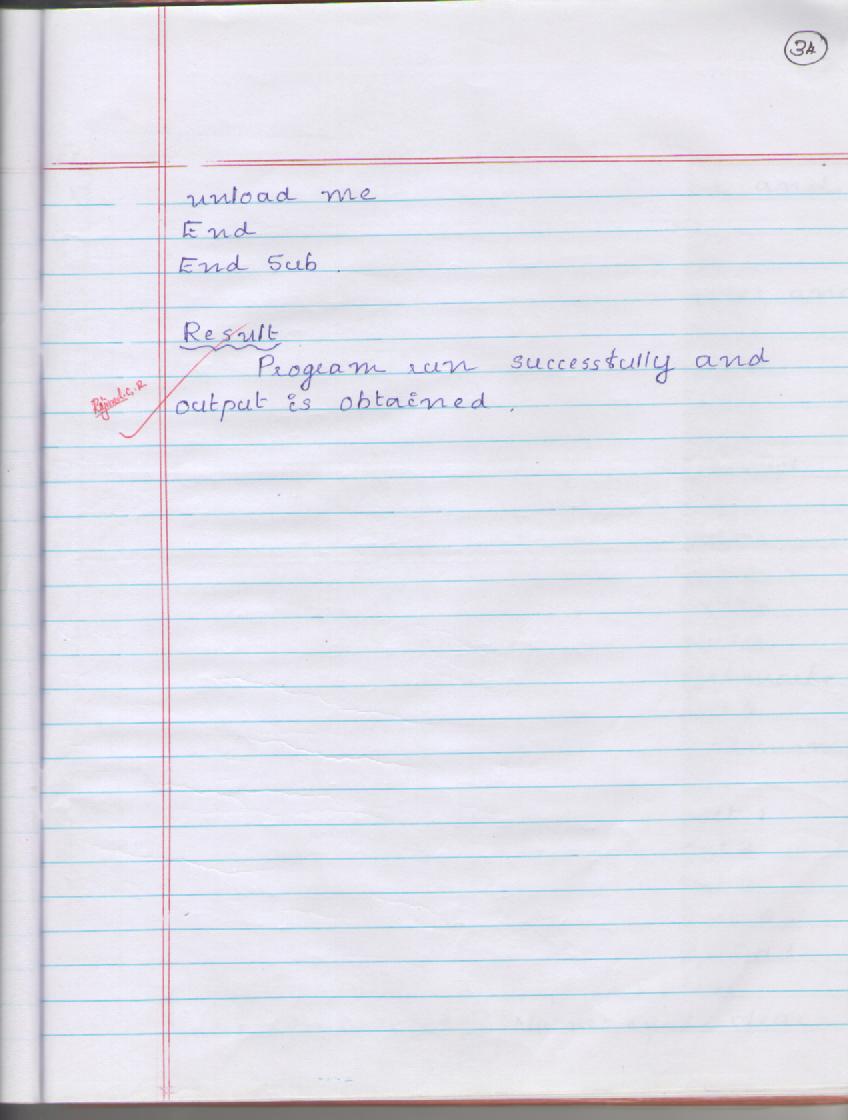 34
unload me
End
End Sub.
Result
Program run successfully and
output is obtained.